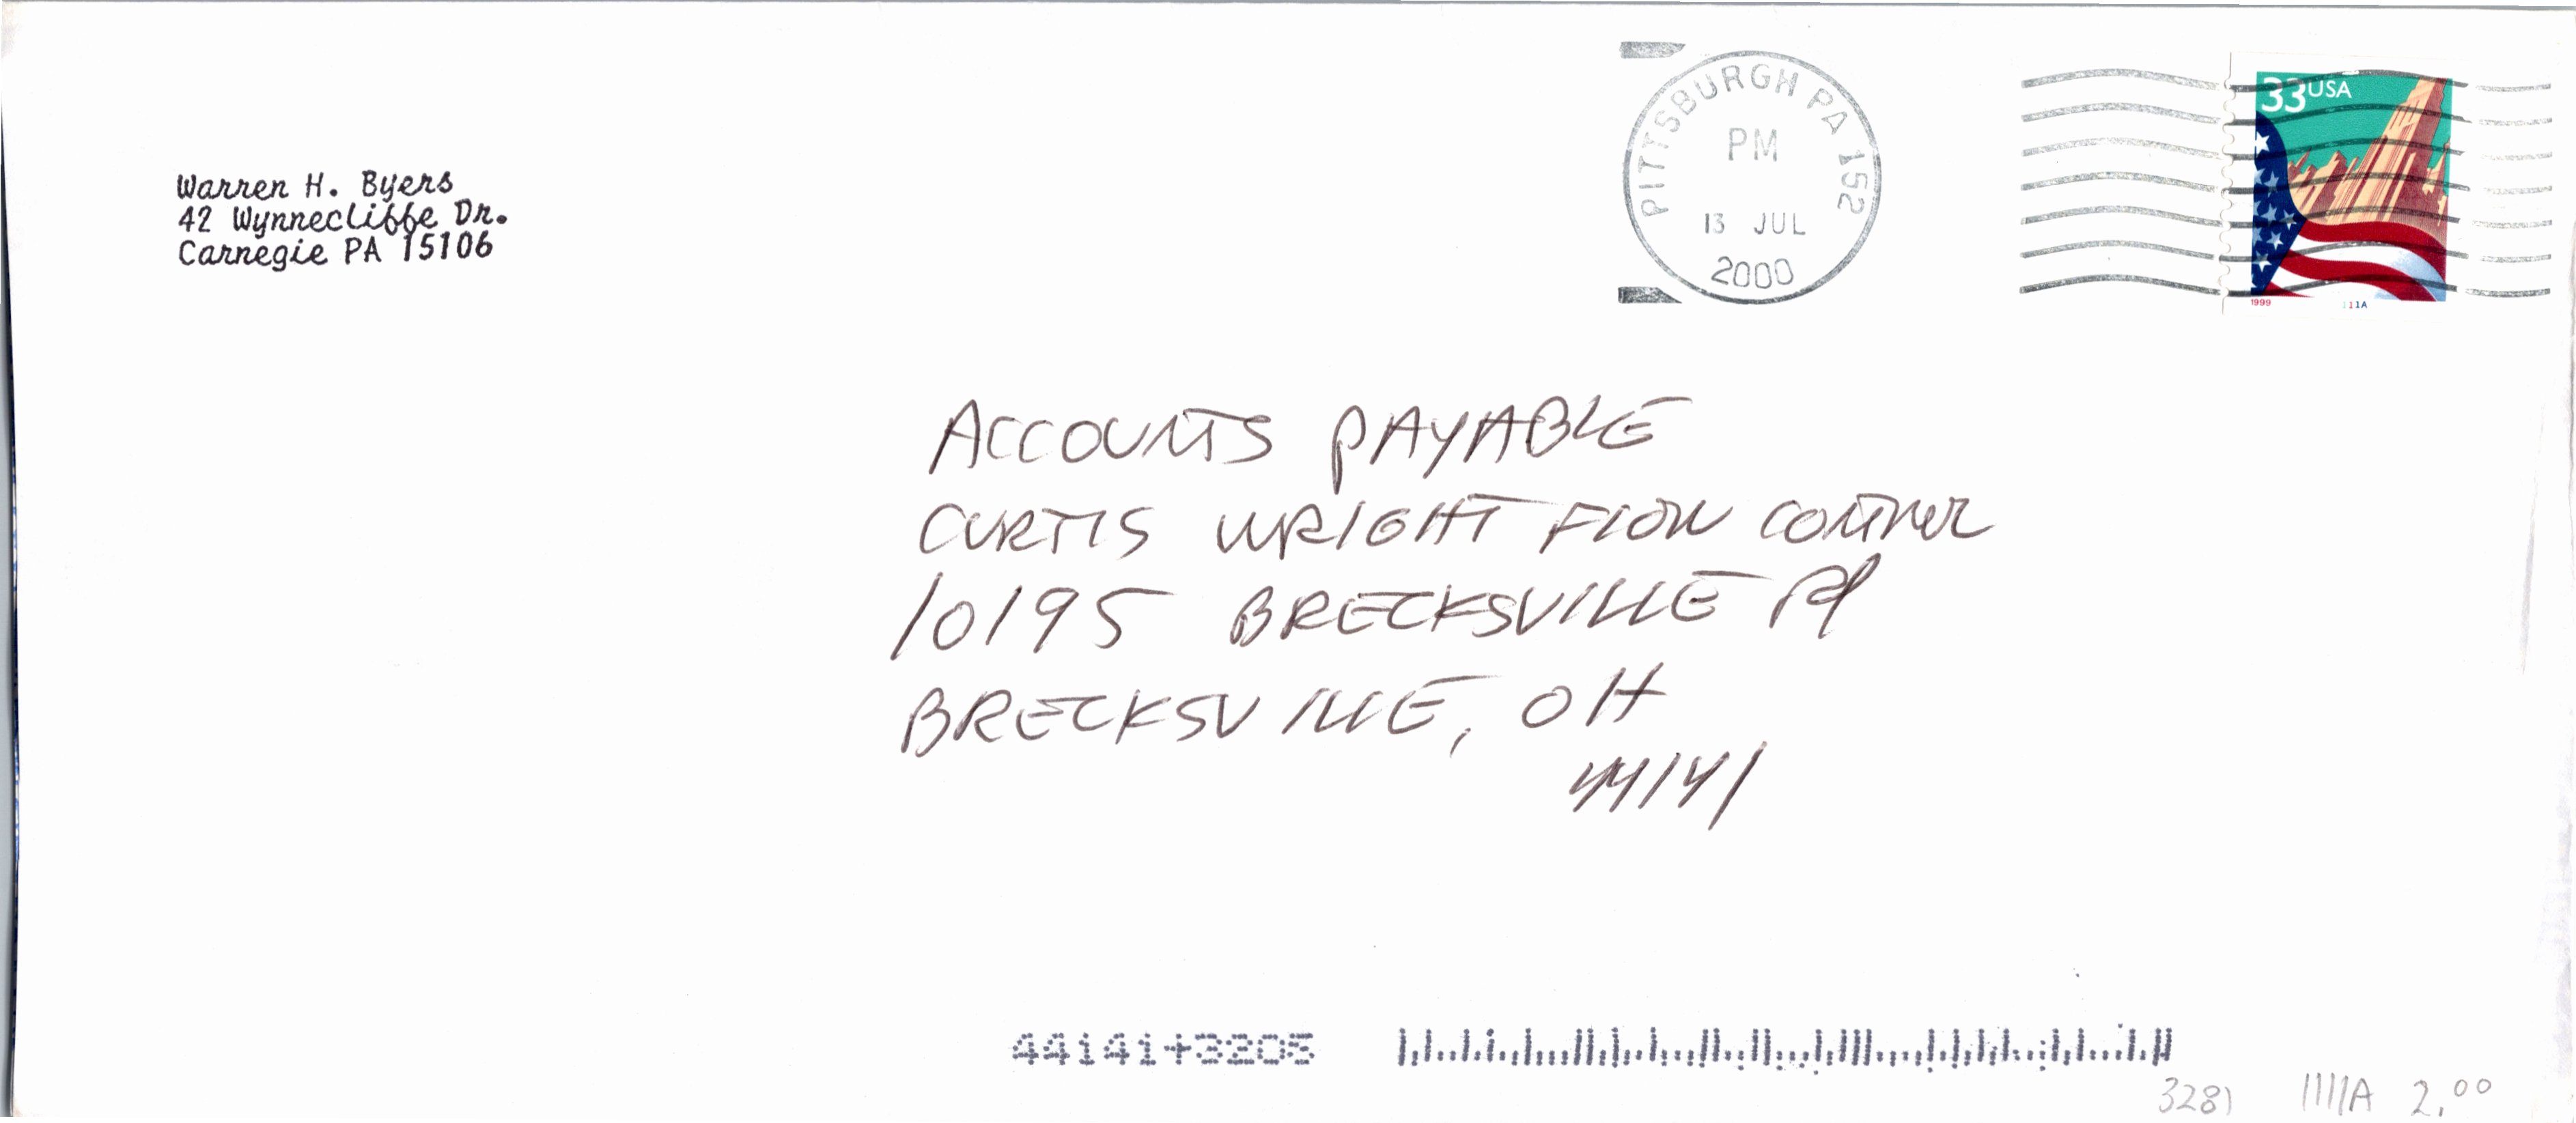 Warren H. Byers
42 Wynnecliffe Dr.
Carnegie PA 15106
PITTSBURGH PA 152
PM
13 JUL
2000
33 USA
1999
111A
ACCOUNTS PAYABLE
CURTIS WRIGHT FLOW CONTROL
10195 BRECKSVILLE Rd
BRECKSVILLE, OH
44141
44141+3205
3281 1111A 2.00